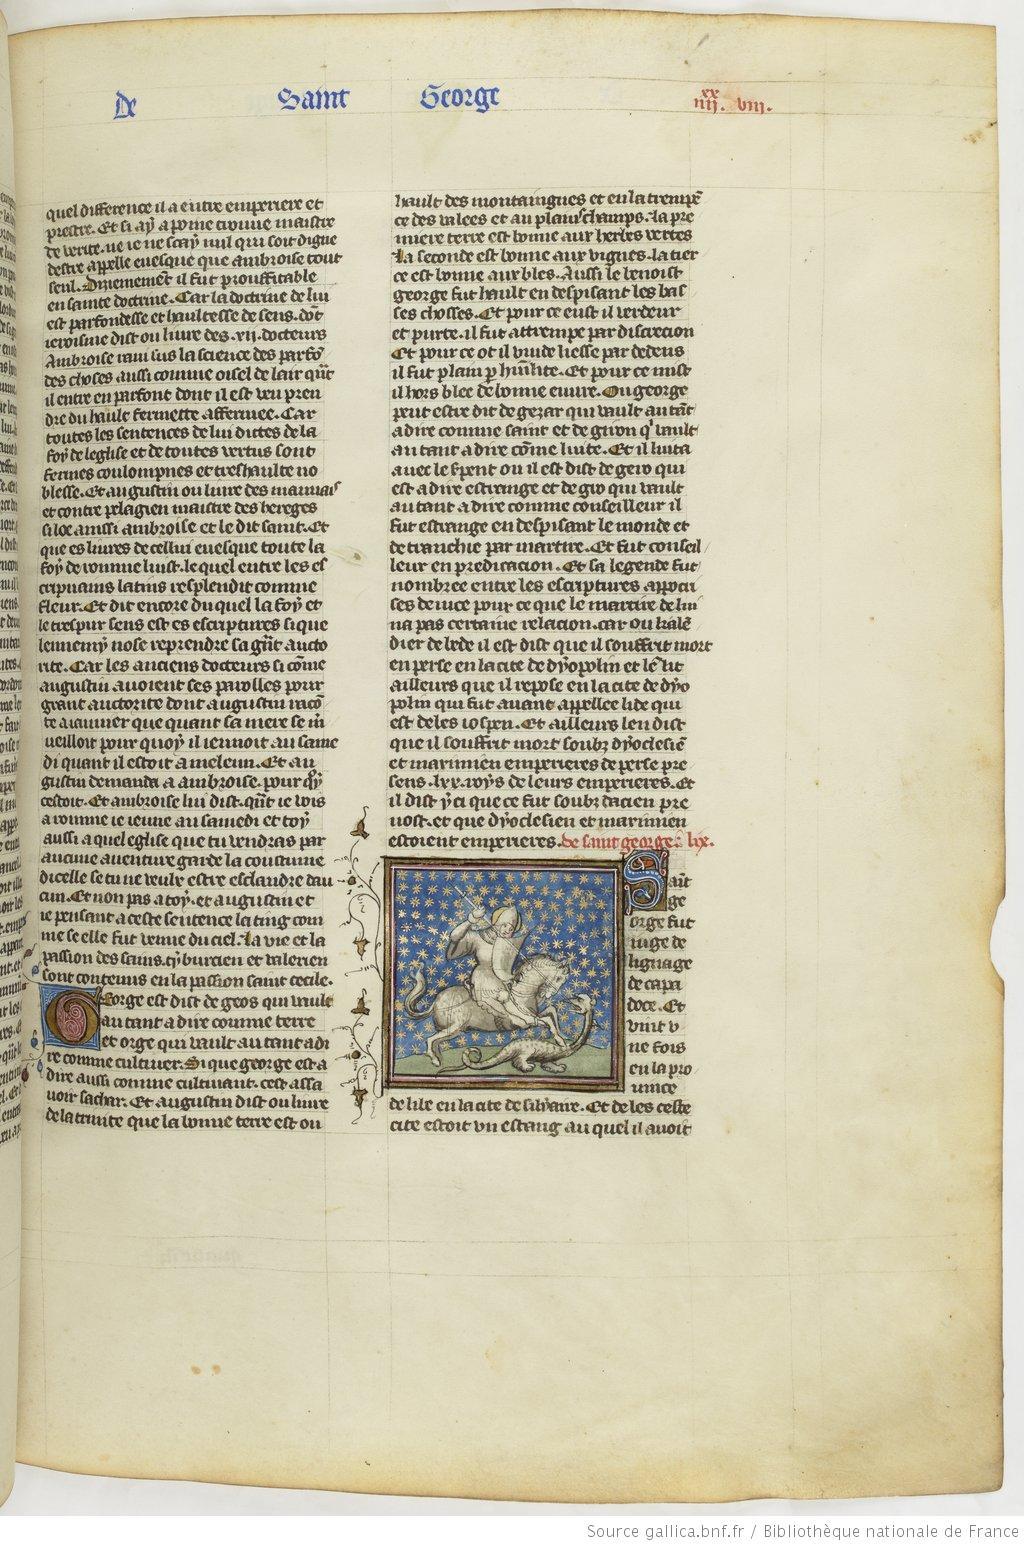 De Saint George
xx
iiij. viij.
quel difference il a entre emperiere et
prestre. Et si ay a poine trouue maistre
de verite. ne ie ne scay nul qui soit digne
destre appelle euesque que ambroise tout
seul. Diziemement il fut prouffitable
en sainte doctrine. Car la doctrine de lui
est parfondesse et haultesse de sens. dōt
ieroisme dist ou liure des .xij. docteurs
Ambroise raui sus la science des parfō
des choses aussi comme oisel de lair qūt
il entre en parfont dont il est veu pren
dre du hault fermette affermee. Car
toutes les sentences de lui dictes de la
foy de leglise et de toutes vertus sont
fermes coulompnes et treshaulte no
blesse. Et augustin ou liure des mariniais
et contre pelagien maistre des hereges
si loe aussi ambroise et le dit saint. Et
que es liures de cellui euesque toute la
foy de romme luist. le quel entre les es
cripuains latins resplendit comme
fleur. Et dit encore du quel la foy et
le trespur sens est es escriptures si que
lennemy nose reprendre sa gūt aucto
rite. Car les anciens docteurs si cōme
augustin auoient ses paroles pour
grant auctorite dont augustin racō
te a ianuier que quant sa mere se m̄
ueilloit pour quoy il ieunoit au same
di quant il estoit a meleun. Et au
gustin demanda a ambroise pour qͦy
cestoit. Et ambroise lui dist. qūt ie vois
a romme ie ieune au samedi et toy
aussi a quel eglise que tu vendras par
aucune auenture garde la coustume
dicelle se tu ne veulz estre esclandre dau
cun. Et non pas a toy. et augustin et
ie pensant a ceste sentence la ting com
me se elle fut venue du ciel. La vie et la
passion des sains tyburcien et valerien
sont contenus en la passion saint cecile.
George est dict de geos qui vault
autant a dire comme terre
et orge qui vault autant adi
re comme cultiuer. Si que george est a
dire aussi comme cultiuant. cest assa
uoir sachar. Et augustin dist ou liure
de la trinite que la bonne terre est ou
hault des montaingnes et en la trempē
ce des valees et au plain champs. la pre
miere terre est bonne aux herbes vertes
La seconde est bonne aux vignes. la tier
ce est bonne aux bles. Aussi le benoist
george fut hault en despisant les bas
ses choses. Et pour ce eust il verdeur
et purte. il fut attrempe par discrecion
Et pour ce ot il vin de liesse par dedens
il fut plain p humilite. Et pour ce mist
il hors blee de bonne euure. Ou george
peut estre dit de gezar qui vault autāt
a dire comme saint et de giron qͥ vault
autant a dire cōme luite. Et il luita
auec le serpent ou il est dist de gero qui
est a dire estrange et de gio qui vault
autant a dire comme conseilleur il
fut estrange en despisant le monde et
detranchie par martire. Et fut conseil
leur en predicacion. Et sa legende fut
nombree entre les escriptures appocri
ses de nice pour ce que le martire de lui
na pas certaine relacion. car ou kalē
dier de bede il est dist que il souffrit mort
en perse en la cite de dyopolin et lē lit
ailleurs que il repose en la cite de dyo
polin qui fut auant appellee lide qui
est deles iospen. Et ailleurs len dist
que il souffrit mort soubz dyoclesiē
et maximien emperieres de perse pre
sens .lxx. roys de leurs emperieres. Et
il dist yci que ce fut soubz dacien pre
uost. et que dyoclesien et maximien
estoient emperieres. de saint george. lix.
Saīt
ge
orge fut
iuge de
lignage
de capa
doce. Et
vint v
ne fois
en la pro
uince
de lile en la cite de silvaire. Et deles ceste
cite estoit vn estang au quel il auoit
Source gallica.bnf.fr / Bibliothèque nationale de France